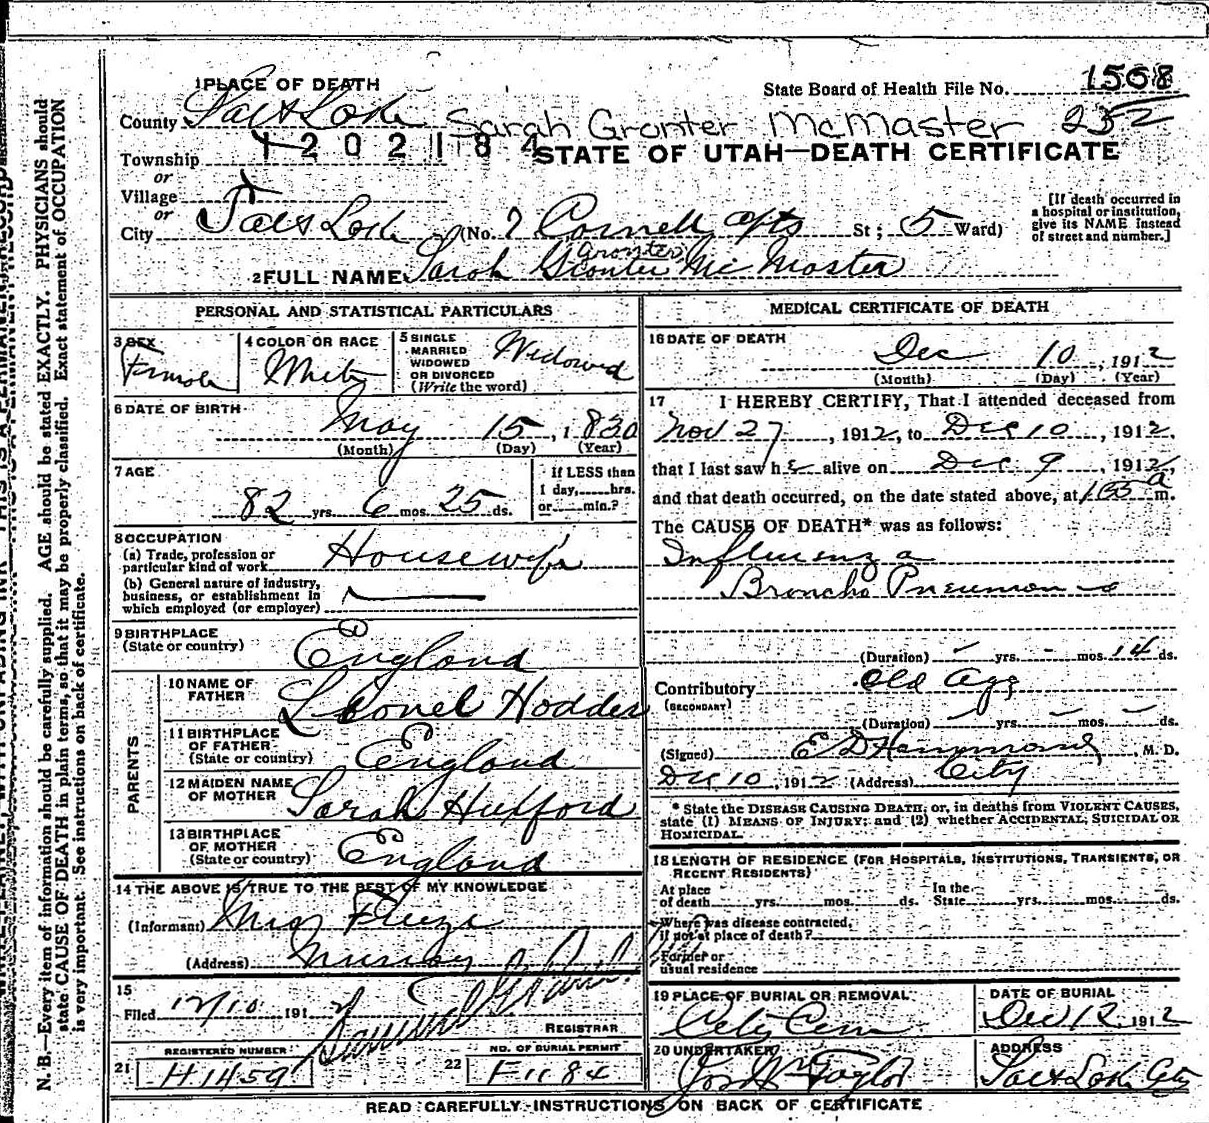 1 PLACE OF DEATH
State Board of Health File No. 1508
County Salt Lake Sarah Gronter McMaster 232
Township 1202184
STATE OF UTAH—DEATH CERTIFICATE
or
Village
or
City Salt Lake (No. 7 Cornell Apts St; 5 Ward)
[If death occurred in
a hospital or institution,
give its NAME instead
of street and number.]
Gronter
2 FULL NAME Sarah Gronter McMaster
PERSONAL AND STATISTICAL PARTICULARS
3 SEX
Female
4 COLOR OR RACE
White
5 SINGLE
MARRIED
WIDOWED
OR DIVORCED
(Write the word)
Widowed
6 DATE OF BIRTH
May 15, 1830
(Month) (Day) (Year)
7 AGE
82 yrs. 6 mos. 25 ds.
if LESS than
1 day, hrs.
or min.?
8 OCCUPATION
(a) Trade, profession or
particular kind of work Housewife
(b) General nature of industry,
business, or establishment in
which employed (or employer)
9 BIRTHPLACE
(State or country) England
10 NAME OF
FATHER Lionel Hodder
11 BIRTHPLACE
OF FATHER
(State or country) England
PARENTS
12 MAIDEN NAME
OF MOTHER Sarah Hulford
13 BIRTHPLACE
OF MOTHER
(State or country) England
14 THE ABOVE IS TRUE TO THE BEST OF MY KNOWLEDGE
(Informant)
(Address) Murray
15
Filed 12/10 1912
REGISTRAR
REGISTERED NUMBER
21 H1459
NO. OF BURIAL PERMIT
22 F1184
MEDICAL CERTIFICATE OF DEATH
16 DATE OF DEATH
Dec 10, 1912
(Month) (Day) (Year)
17 I HEREBY CERTIFY, That I attended deceased from
Nov 27, 1912, to Dec 10, 1912,
that I last saw h alive on Dec 9, 1912,
and that death occurred, on the date stated above, at a m.
The CAUSE OF DEATH* was as follows:
Influenza
Broncho Pneumonia
(Duration) - yrs. - mos. 14 ds.
Contributory Old Age
(SECONDARY)
(Duration) - yrs. - mos. - ds.
(Signed) E D Hammond, M. D.
Dec 10, 1912 (Address) City
* State the DISEASE CAUSING DEATH; or, in deaths from VIOLENT CAUSES,
state (1) MEANS OF INJURY; and (2) whether ACCIDENTAL, SUICIDAL OR
HOMICIDAL.
18 LENGTH OF RESIDENCE (FOR HOSPITALS, INSTITUTIONS, TRANSIENTS, OR
RECENT RESIDENTS)
At place
of death yrs. mos. ds.
In the
State yrs. mos. ds.
Where was disease contracted,
if not at place of death?
Former or
usual residence
19 PLACE OF BURIAL OR REMOVAL
City Cem
DATE OF BURIAL
Dec 12, 1912
20 UNDERTAKER
Taylor
ADDRESS
Salt Lake City
READ CAREFULLY INSTRUCTIONS ON BACK OF CERTIFICATE
N. B.—Every item of information should be carefully supplied. AGE should be stated EXACTLY. PHYSICIANS should
state CAUSE OF DEATH in plain terms, so that it may be properly classified. Exact statement of OCCUPATION
is very important. See instructions on back of certificate.